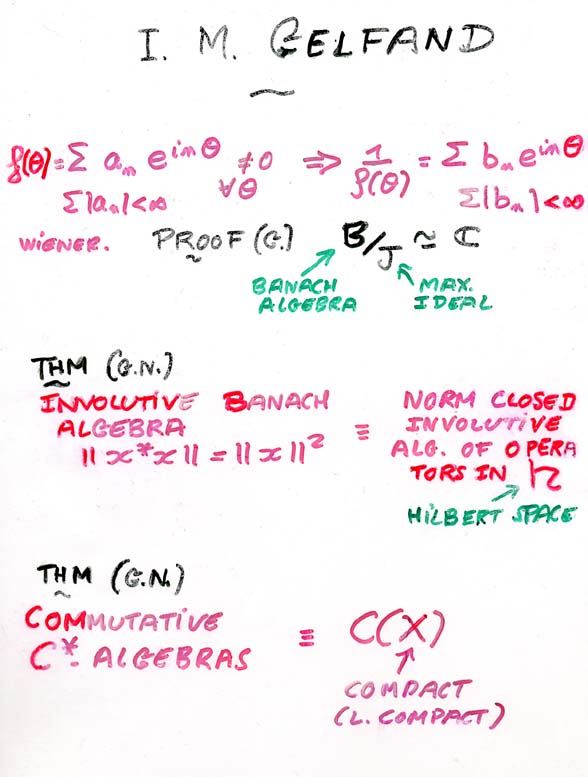 I. M. GELFAND
~
f(θ) = Σ aₙ e^{inθ} ≠0 ∀θ ⇒ 1/f(θ) = Σ bₙ e^{inθ}
Σ|aₙ|<∞ Σ|bₙ|<∞
WIENER. PROOF (G.) B/J ≃ ℂ
BANACH ALGEBRA MAX. IDEAL
THM (G.N.)
INVOLUTIVE BANACH
ALGEBRA
‖x*x‖ = ‖x‖²
≡
NORM CLOSED
INVOLUTIVE
ALG. OF OPERA
TORS IN h
HILBERT SPACE
THM (G.N.)
COMMUTATIVE
C*. ALGEBRAS
≡ C(X)
COMPACT
(L. COMPACT)